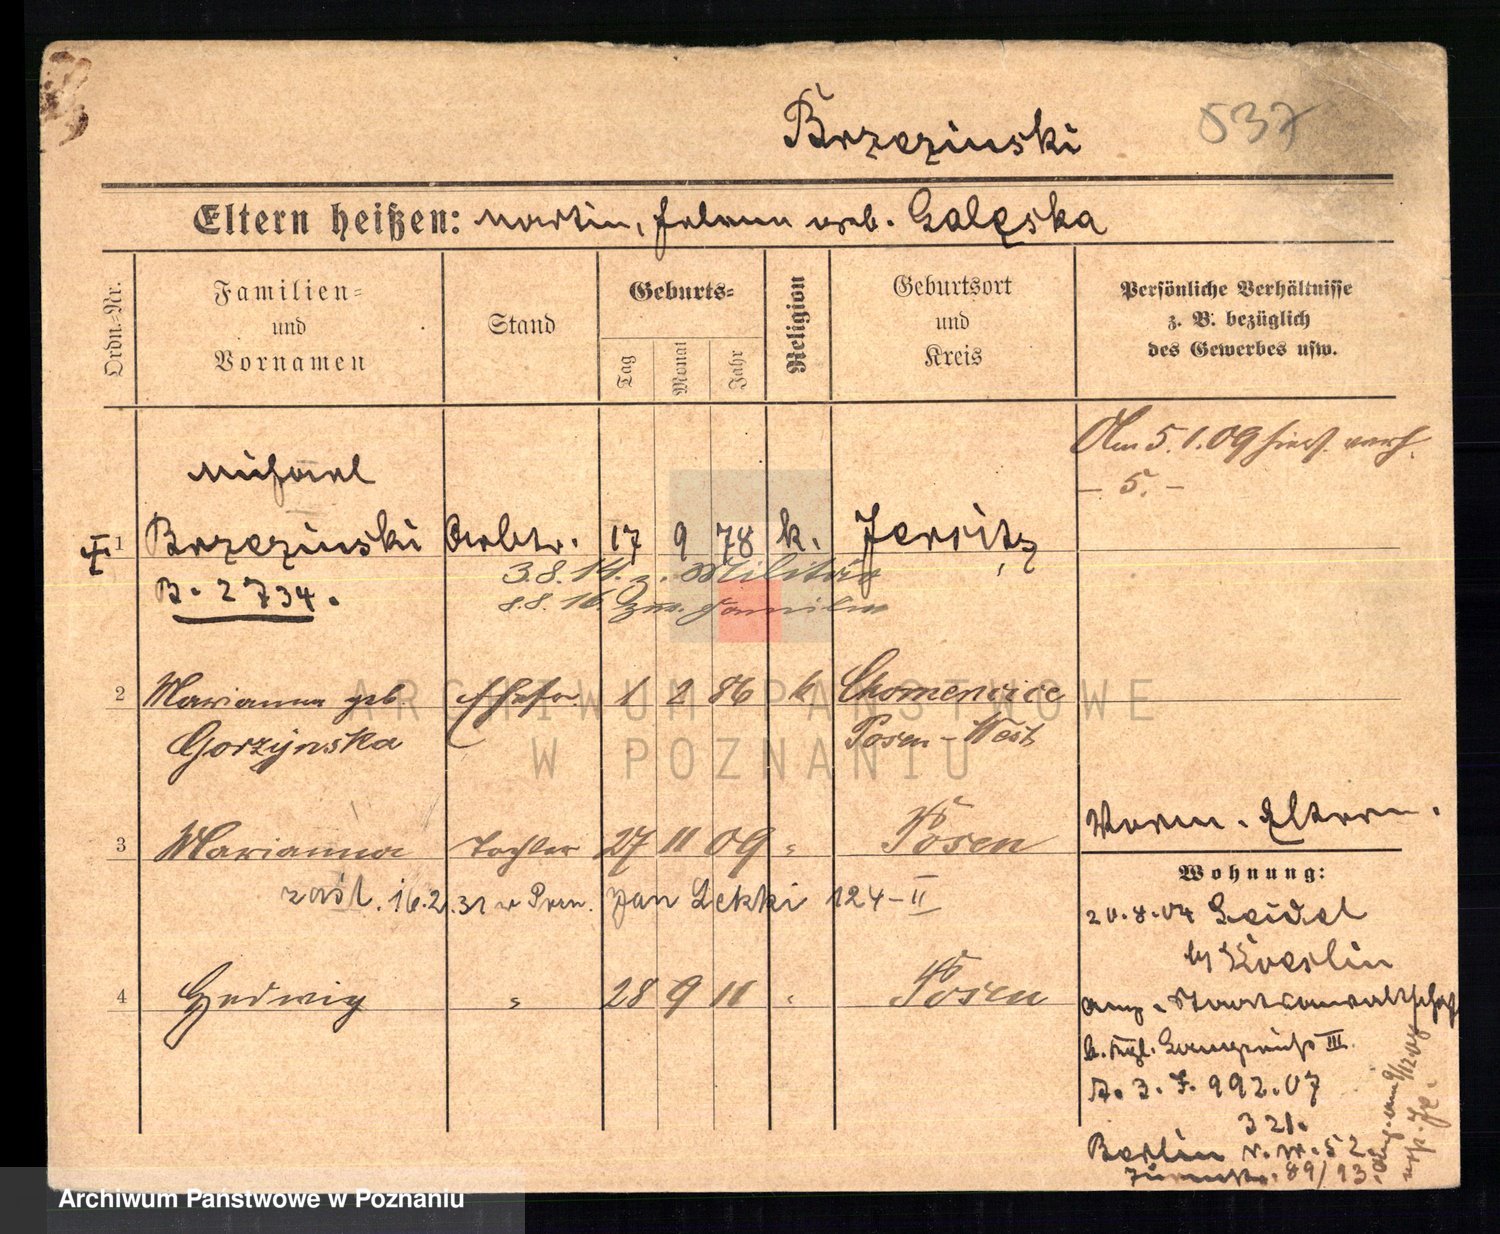 Brzezinski
537
Eltern heißen: Martin, Helene geb. Galęska
Ordn.-Nr.
Familien-
und
Vornamen
Stand
Geburts-
Tag
Monat
Jahr
Religion
Geburtsort
und
Kreis
Persönliche Verhältnisse
z. B. bezüglich
des Gewerbes usw.
Am 5.1.09 hier verh.
– 5. –
Michael
1 Brzezinski Arbtr. 17 9 78 k. Jersitz
B. 2734.
3.8.14. z. Militär
8.8.16. zur Familie
2 Marianna geb Ehefr 1 2 86 k Chomencice
Gorzynska Posen-West
3 Marianna Tochter 27 11 09 " Posen
Vorm. Eltern.
16.2.31 Jan 124-II
4 Hedwig " 28 9 11 " Posen
Wohnung:
20.8.04 Seidel
by Koeslin
Staatsanwaltschaft
b. Kgl. Landgericht III
A. 3. J. 992.07
321.
Berlin N.W. 52.
89/93.
ARCHIWUM PAŃSTWOWE
W POZNANIU
Archiwum Państwowe w Poznaniu